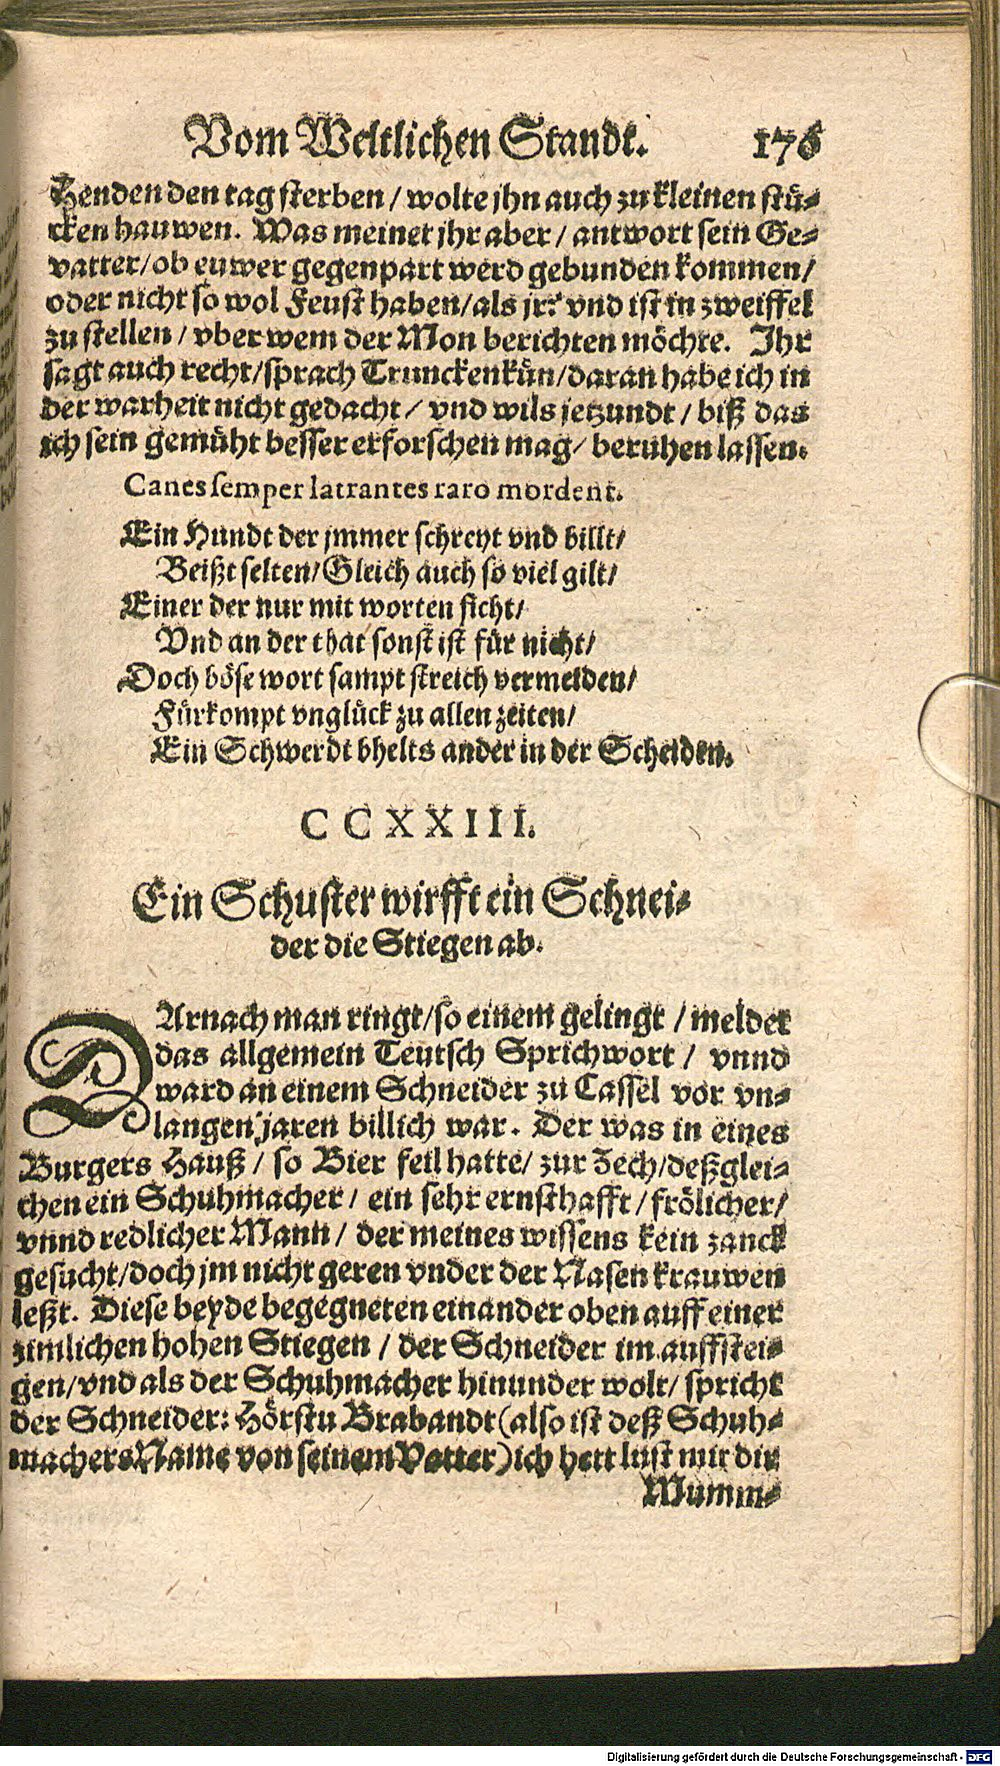 Vom Weltlichen Standt. 176
Henden den tag sterben / wolte jhn auch zu kleinen stü-
cken hauwen. Was meinet jhr aber / antwort sein Ge-
vatter / ob euwer gegenpart werd gebunden kommen /
oder nicht so wol Feust haben / als jr? vnd ist in zweiffel
zu stellen / vber wem der Mon berichten möchte. Ihr
sagt auch recht / sprach Trunckenkün / daran habe ich in
der warheit nicht gedacht / vnd wils jetzundt / biß das
ich sein gemüht besser erforschen mag / beruhen lassen.
Canes semper latrantes raro mordent.
Ein Hundt der jmmer schreyt vnd billt /
Beißt selten / Gleich auch so viel gilt /
Einer der nur mit worten ficht /
Vnd an der that sonst ist für nicht /
Doch böse wort sampt streich vermelden /
Fürkompt vnglück zu allen zeiten /
Ein Schwerdt bhelts ander in der Scheiden.
CCXXIII.
Ein Schuster wirfft ein Schnei-
der die Stiegen ab.
DArnach man ringt / so einem gelingt / meldet
das allgemein Teutsch Sprichwort / vnnd
ward an einem Schneider zu Cassel vor vn-
langen jaren billich war. Der was in eines
Burgers Hauß / so Bier feil hatte / zur Zech / deßglei-
chen ein Schuhmacher / ein sehr ernsthafft / frölicher /
vnnd redlicher Mann / der meines wissens kein zanck
gesucht / doch jm nicht geren vnder der Nasen krauwen
leßt. Diese beyde begegneten einander oben auff einer
zimlichen hohen Stiegen / der Schneider im auffstei-
gen / vnd als der Schuhmacher hinunder wolt / spricht
der Schneider: Hörstu Brabandt (also ist deß Schuh-
machers Name von seinem Vatter) ich hett lust mit dir
Mumm-
Digitalisierung gefördert durch die Deutsche Forschungsgemeinschaft - DFG